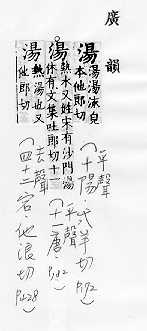 廣韻
湯湯湯流皃
本他郎切
平聲
(十陽)式羊切
湯熱水又姓宋有沙門湯
休有文集吐郎切十
平聲
(十一唐)P.182
湯熱湯也又
他郎切
去聲
(四十三宕·他浪切P.428)